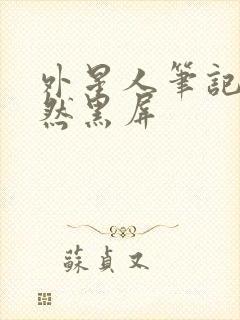 外星人筆記
然黑屏
蘇貞又